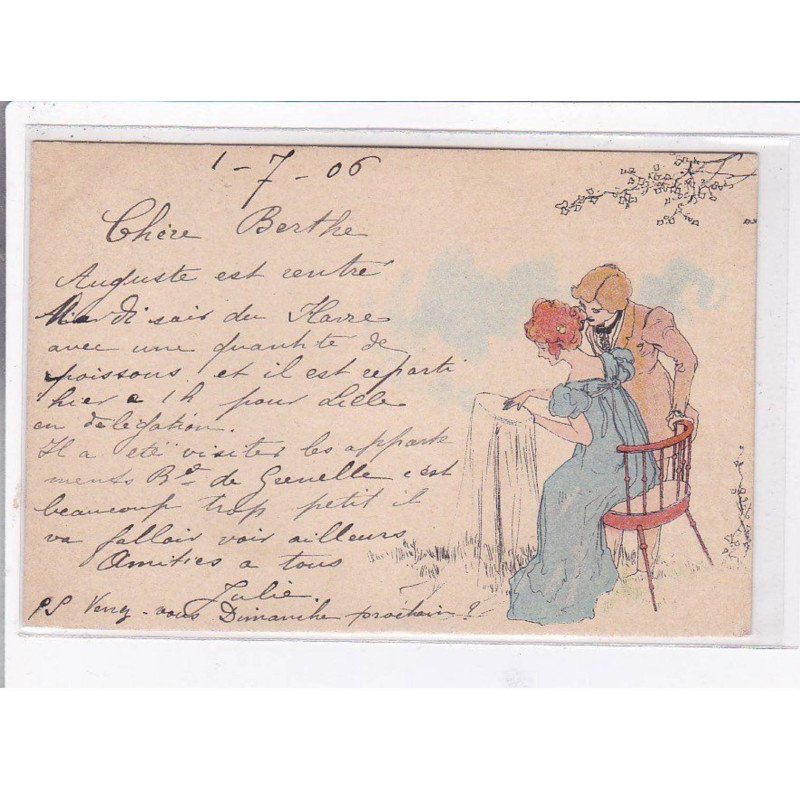 1-7-06
Chère Berthe
Auguste est rentré
Mardi soir du Havre
avec une quantité de
poissons et il est reparti
hier a 1h pour Lille
en délégation.
Il a été visiter les apparte
ments Bd de Grenelle c'est
beaucoup trop petit il
va falloir voir ailleurs
Amitiés a tous
Julie.
PS Venez-vous Dimanche prochain ?